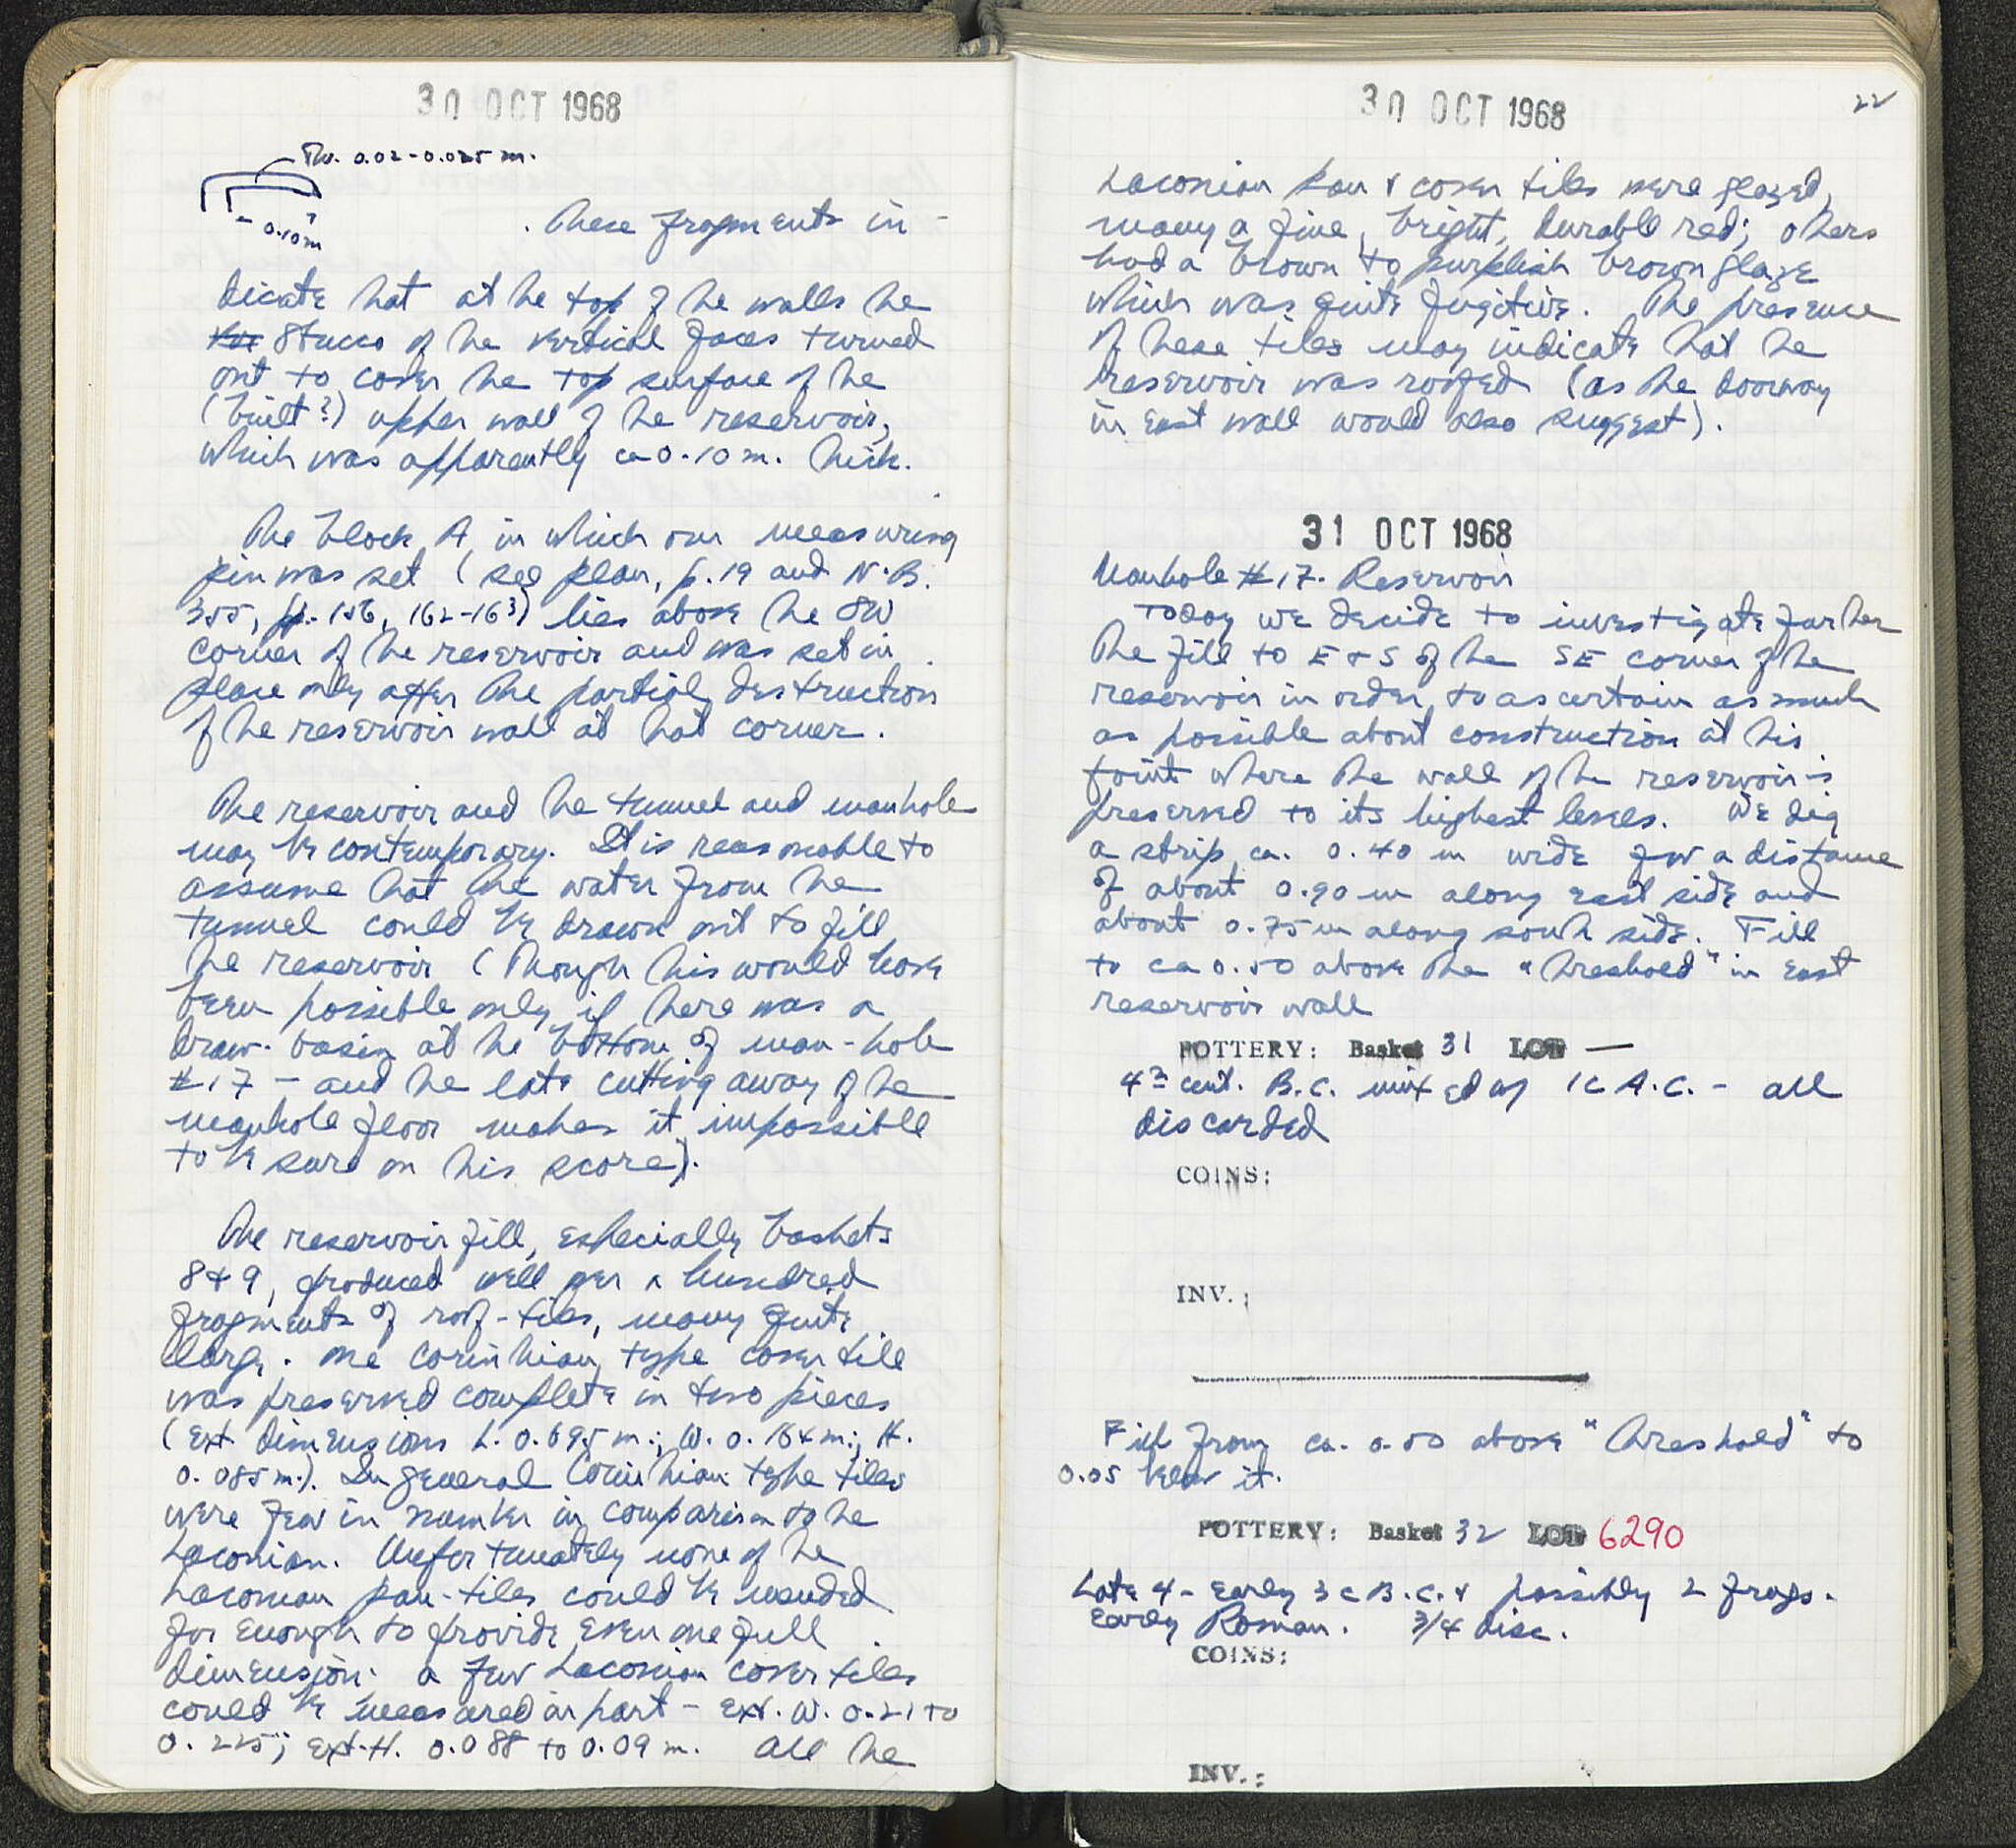 30 OCT 1968
Th. 0.02-0.025 m.
0.10 m
. These fragments in-
dicate that at the top of the walls the
stucco of the vertical faces turned
out to cover the top surface of the
(built?) upper wall of the reservoir,
which was apparently ca 0.10 m. thick.
The block A, in which our measuring
pin was set (see plan, p. 19 and N.B.
355, pp. 156, 162-163) lies above the SW
corner of the reservoir and was set in
place only after the partial destruction
of the reservoir wall at that corner.
The reservoir and the tunnel and manhole
may be contemporary. It is reasonable to
assume that the water from the
tunnel could be drawn out to fill
the reservoir (though this would have
been possible only if there was a
draw-basin at the bottom of man-hole
#17 - and the late cutting away of the
manhole floor makes it impossible
to be sure on this score).
The reservoir fill, especially baskets
8+9, produced well over a hundred
fragments of roof-tiles, many quite
large. One Corinthian type cover tile
was preserved complete in two pieces
(Ext. dimensions L. 0.695 m.; W. 0.184 m.; H.
0.085 m.). In general Corinthian type tiles
were few in number in comparison to the
Laconian. Unfortunately none of the
Laconian pan-tiles could be mended
far enough to provide even one full
dimension. a few Laconian cover tiles
could be measured in part - Ext. W. 0.21 to
0.225; Ext. H. 0.088 to 0.09 m. All the
30 OCT 1968
22
Laconian pan + cover tiles were glazed,
many a fine, bright, durable red; others
had a brown to purplish brown glaze
which was quite fugitive. The presence
of these tiles may indicate that the
reservoir was roofed (as the doorway
in East wall would also suggest).
31 OCT 1968
Manhole #17. Reservoir
Today we decide to investigate further
the fill to E + S of the SE corner of the
reservoir in order to ascertain as much
as possible about construction at this
point where the wall of the reservoir is
preserved to its highest levels. We dig
a strip ca. 0.40 m wide for a distance
of about 0.90 m along east side and
about 0.75 m along south side. Fill
to ca 0.50 above the "threshold" in East
reservoir wall
POTTERY: Basket 31 LOT —
4th cent. B.C. mixed w/ 1c A.C. - all
discarded
COINS:
INV.:
Fill from ca. 0.50 above "threshold" to
0.05 below it.
POTTERY: Basket 32 LOT 6290
Late 4 - Early 3 c B.C. + possibly 2 frags.
Early Roman. 3/4 disc.
COINS:
INV.: